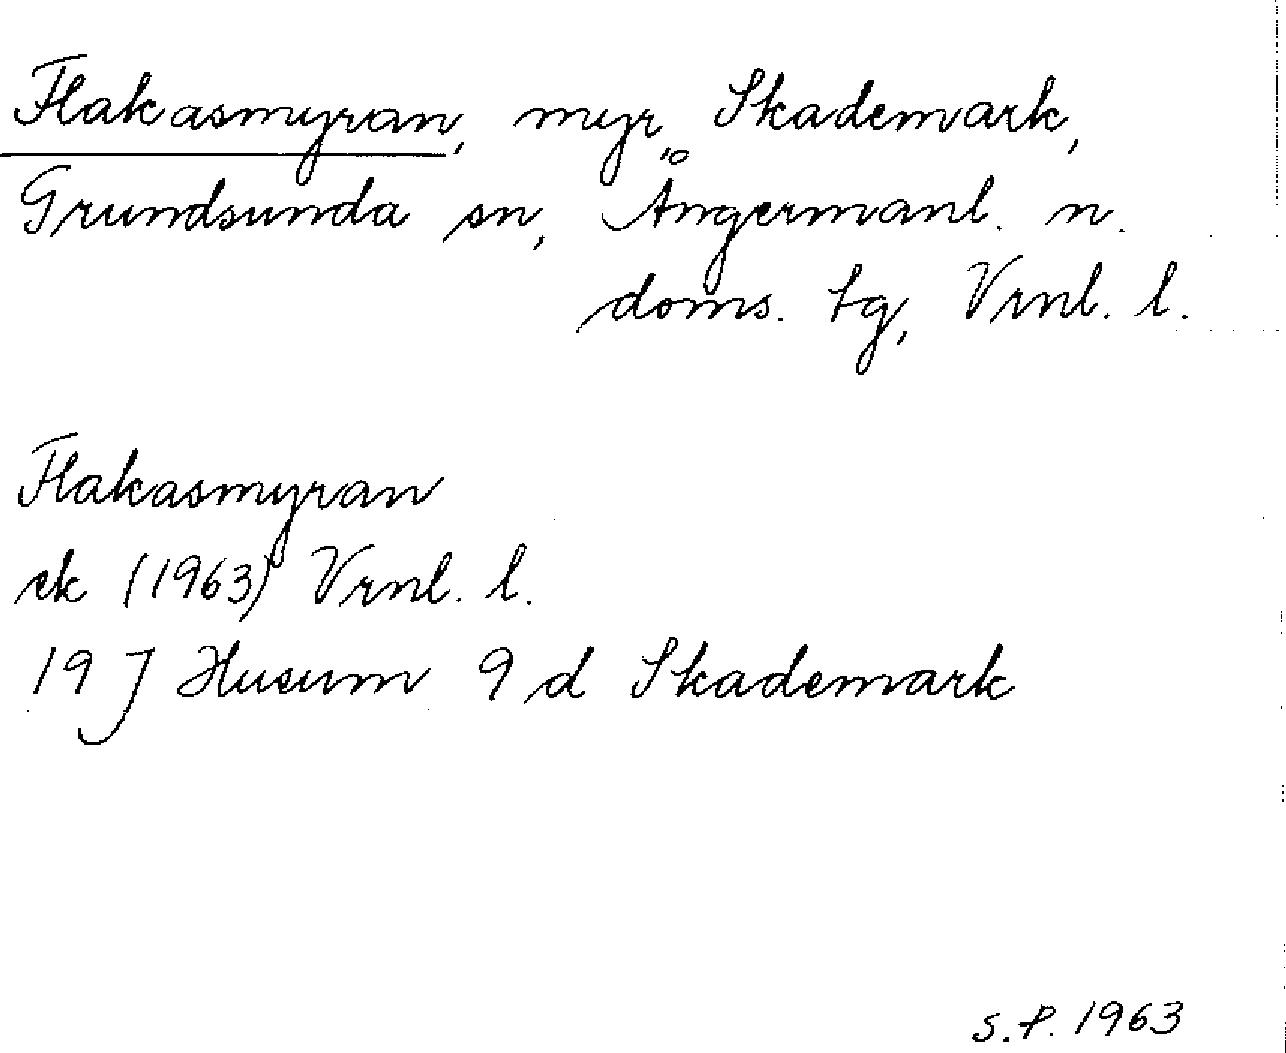 Flakasmyran, myr, Skademark,
Grundsunda sn, Ångermanl. n.
doms. tg, Vrnl. l.
Flakasmyran
ek (1963) Vrnl. l.
19 J Husum 9 d Skademark
S.P. 1963